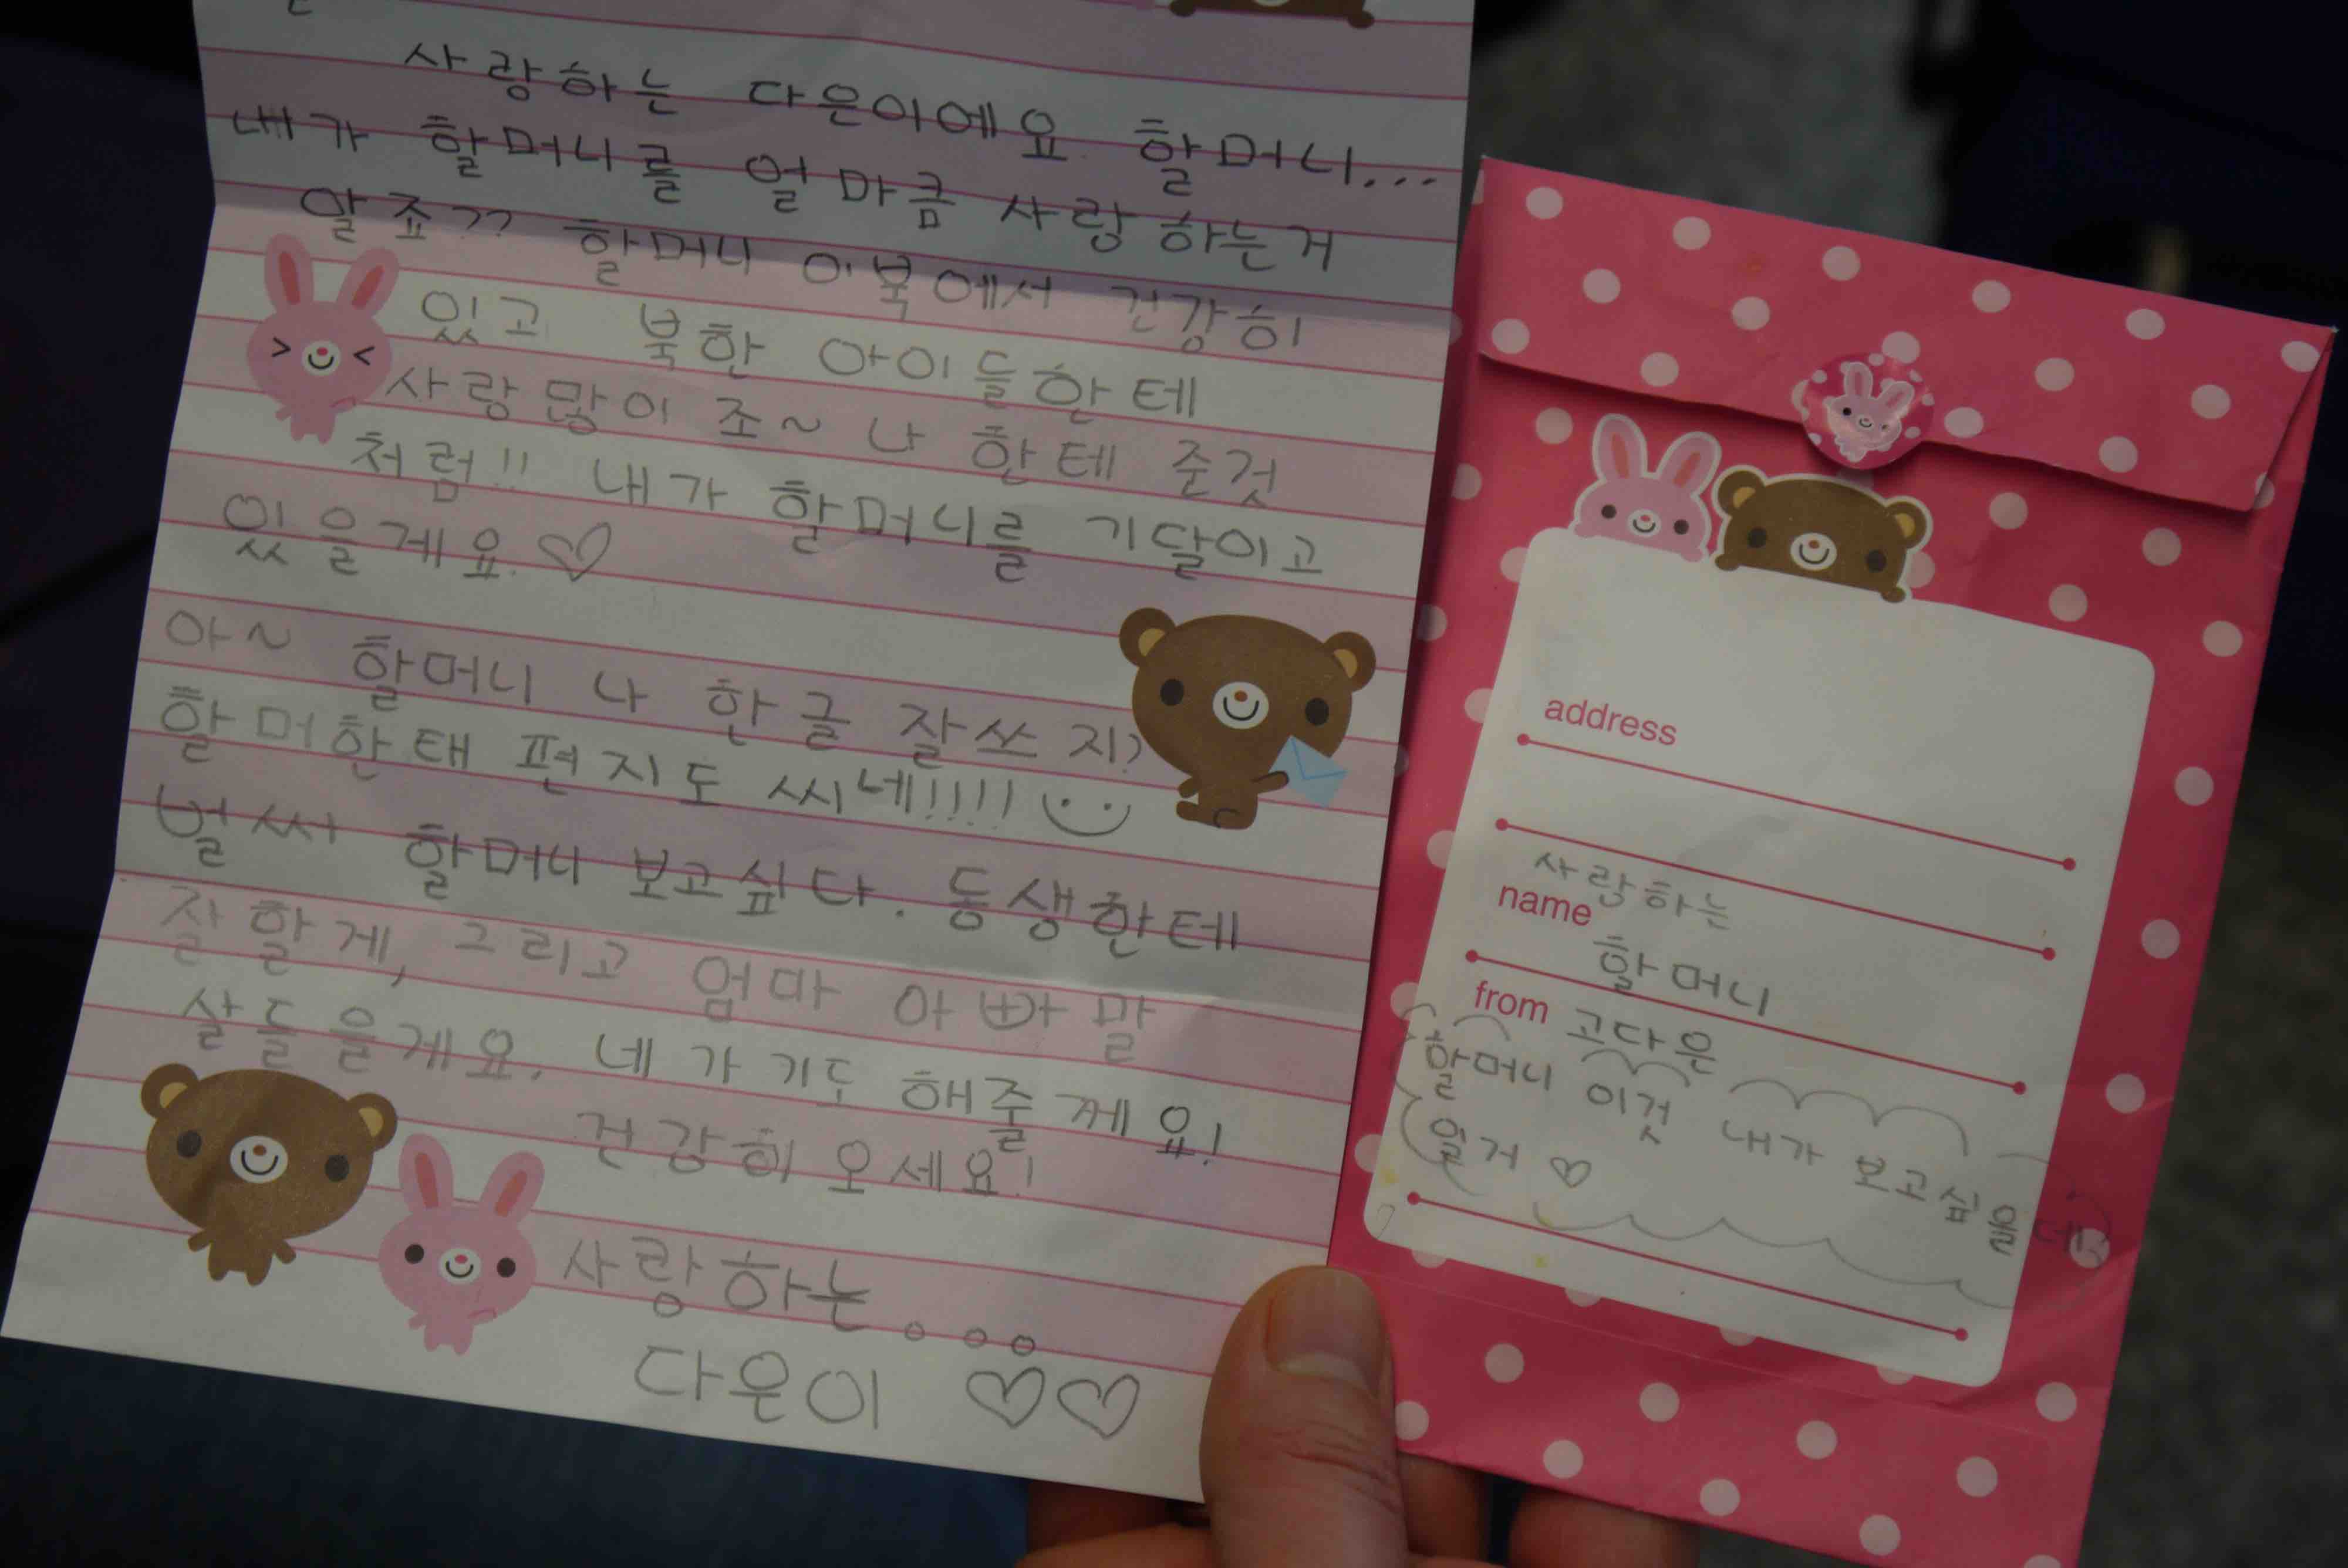 사랑하는 다은이에요 할머니...
내가 할머니를 얼마큼 사랑하는거
알죠?? 할머니 이북에서 건강히
있고 북한 아이들한테
사랑많이 조~ 나 한테 준것
처럼!! 내가 할머니를 기달이고
있을게요.♡
아~ 할머니 나 한글 잘쓰지?
할머한태 편지도 씨네!!!!
벌써 할머니 보고싶다. 동생한테
잘할게, 그리고 엄마 아빠 말
잘들을게요. 네가 기도 해줄께요!
건강히 오세요!
사랑하는...
다은이 ♡♡
address
사랑하는
name
할머니
from 고다은
할머니 이것 내가 보고싶을 때
일거 ♡